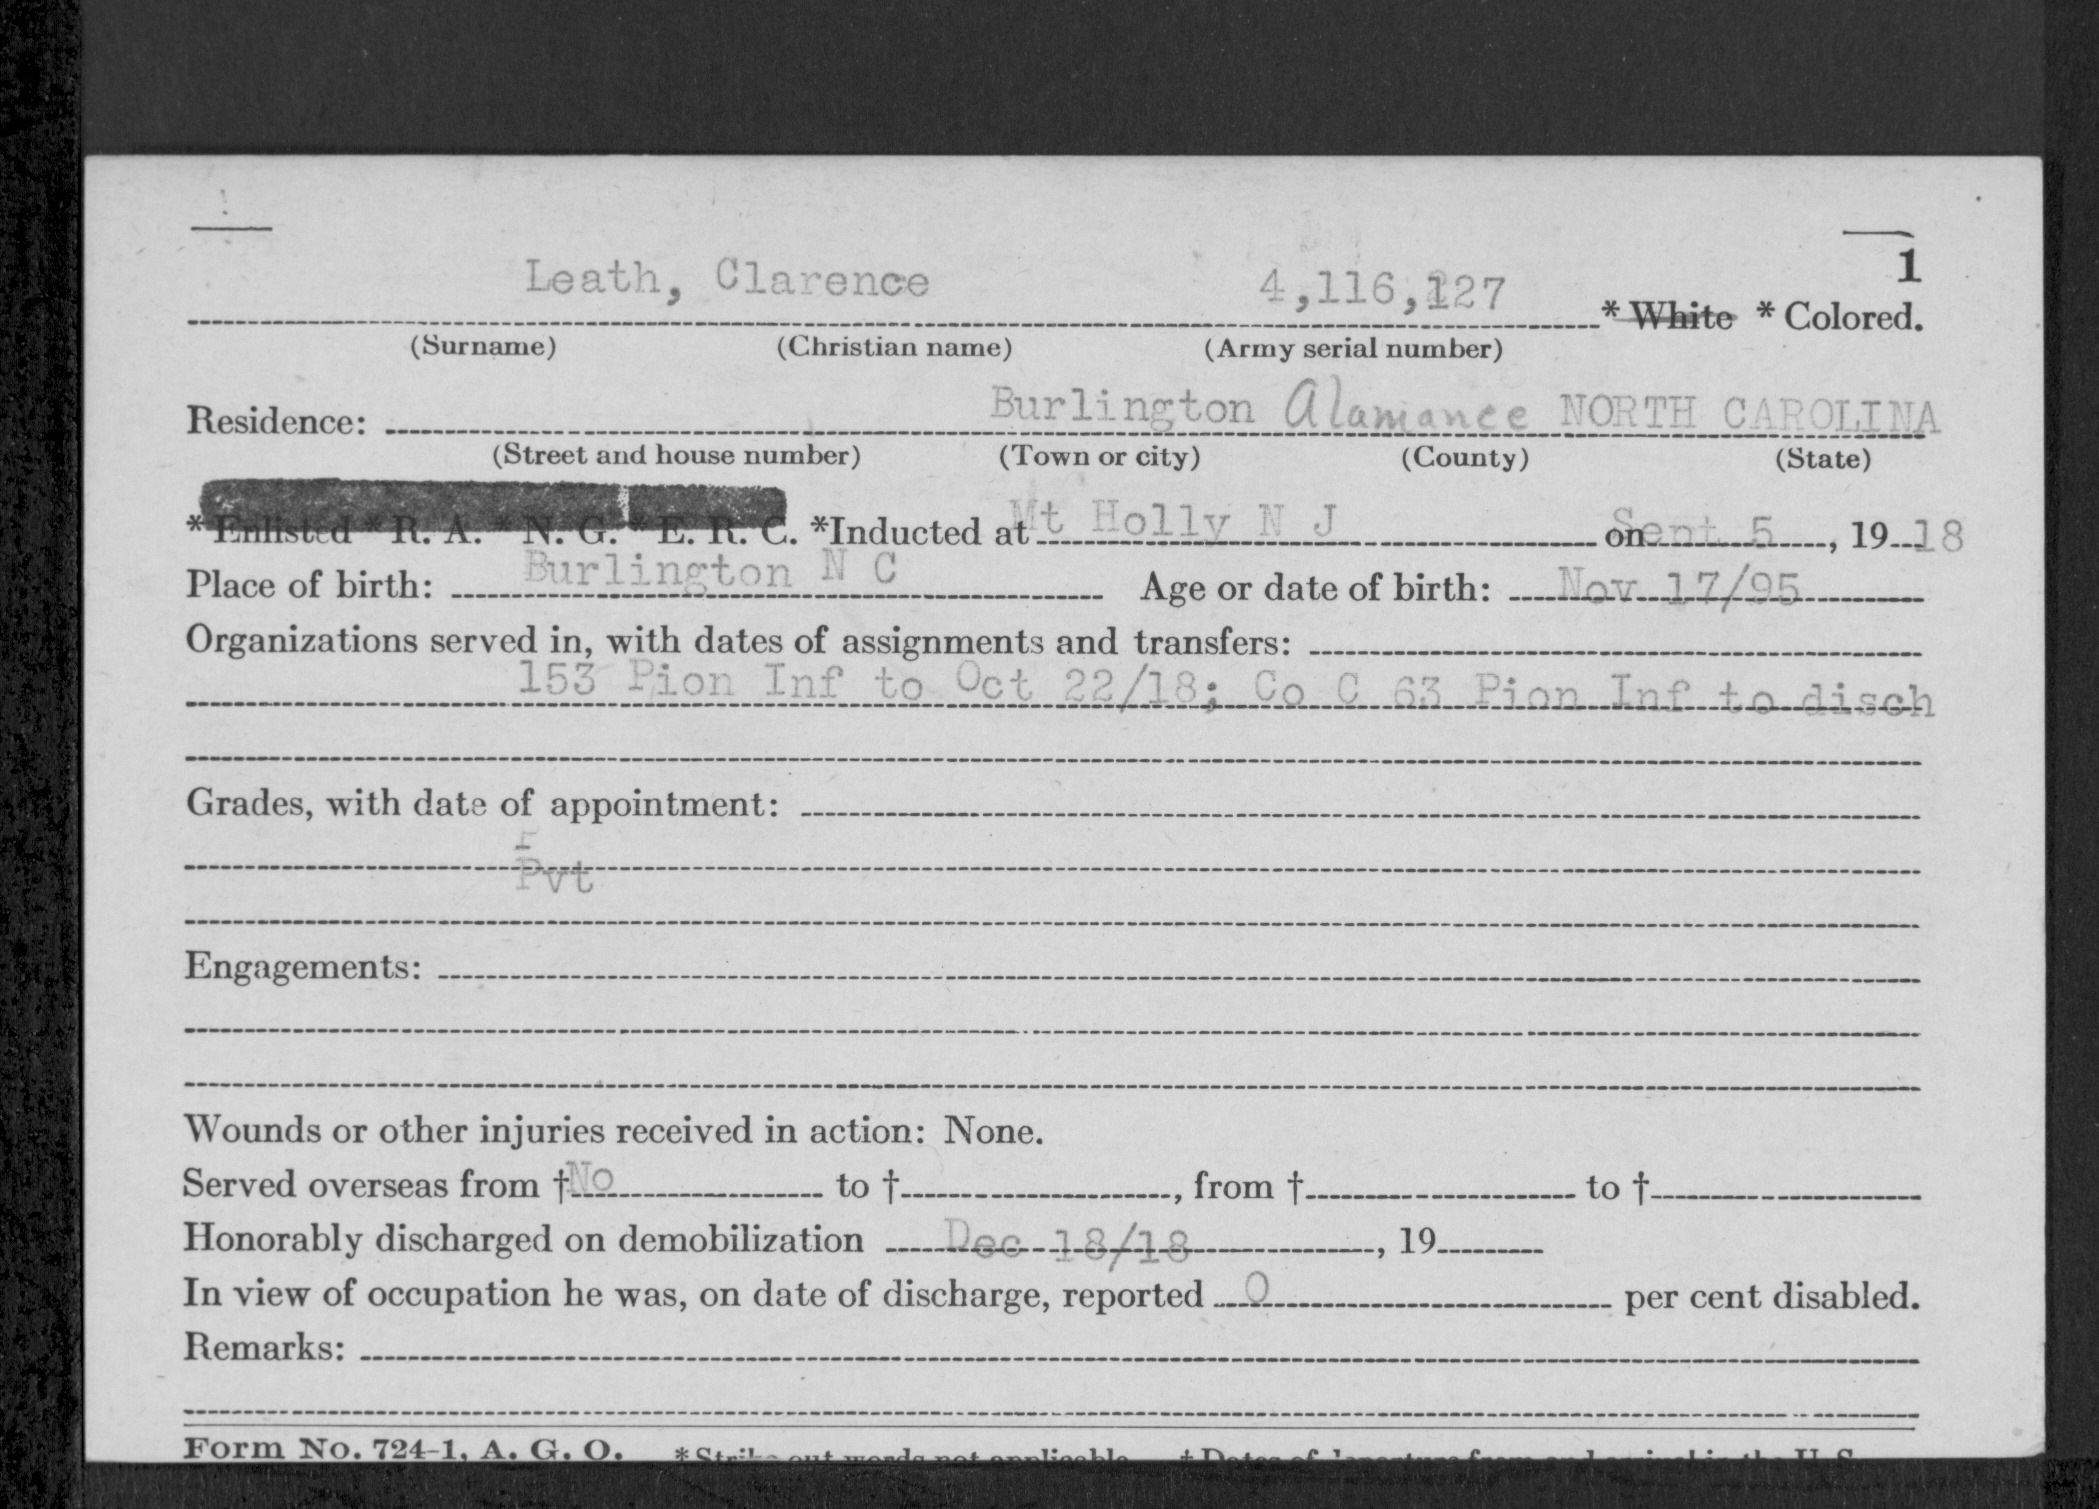 1
Leath, Clarence 4,116,127 * White * Colored.
(Surname) (Christian name) (Army serial number)
Residence: Burlington Alamance NORTH CAROLINA
(Street and house number) (Town or city) (County) (State)
* Enlisted * R. A. * N. G. * E. R. C. *Inducted at Mt Holly N J on Sept 5, 1918
Place of birth: Burlington N C Age or date of birth: Nov 17/95
Organizations served in, with dates of assignments and transfers:
153 Pion Inf to Oct 22/18; Co C 63 Pion Inf to disch
Grades, with date of appointment:
Pvt
Engagements:
Wounds or other injuries received in action: None.
Served overseas from † No to †, from † to †
Honorably discharged on demobilization Dec 18/18, 19
In view of occupation he was, on date of discharge, reported 0 per cent disabled.
Remarks:
Form No. 724-1, A. G. O. * Strike out words not applicable † Dates of departure from and arrival in the U S